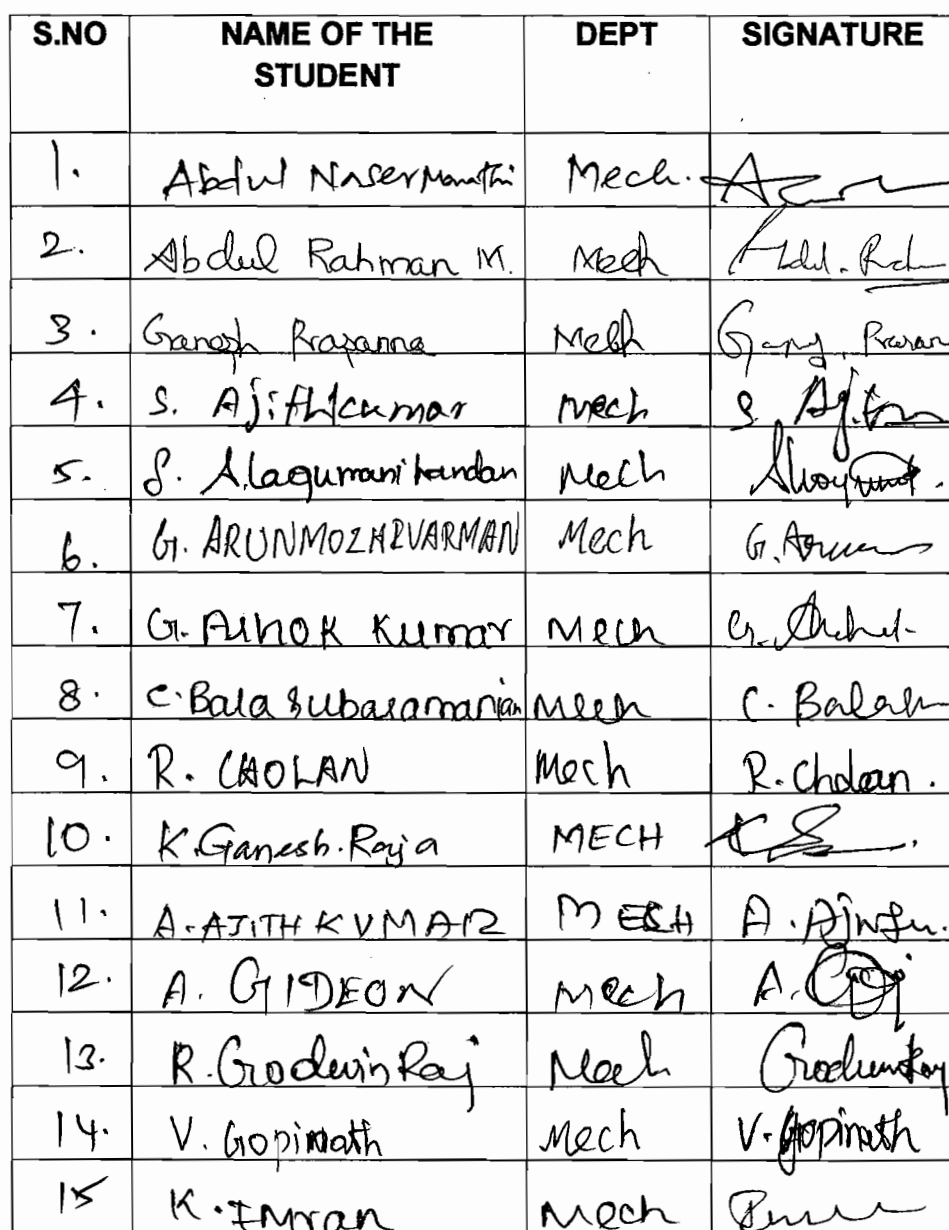 S.NO NAME OF THE STUDENT DEPT SIGNATURE
1. Abdul Naser Mech.
2. Abdul Rahman M. Mech
3. Ganesh Prasanna Mech
4. S. Ajithkumar Mech S.
5. S. Alagumanikandan Mech
6. G. ARUNMOZHIVARMAN Mech G. Arun
7. G. Ashok Kumar Mech G.
8. C. Bala Subaramanian Mech C.
9. R. CHOLAN Mech R. Cholan.
10. K. Ganesh. Raja MECH
11. A. AJITH KUMAR MECH A.
12. A. GIDEON Mech A.
13. R. Godwin Raj Mech Godwin Raj
14. V. Gopinath Mech V. Gopinath
15 K. Imran Mech